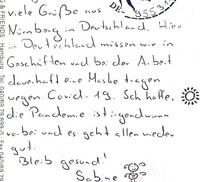 viele Grüße aus
Nürnberg in Deutschland. Hier
in Deutschland müssen wir in
Geschäften und bei der Arbeit
dauerhaft eine Maske tragen
wegen Covid-19. Ich hoffe,
die Pandemie ist irgendwann
vorbei und es geht allen wieder
gut.
Bleib gesund!
Sabine